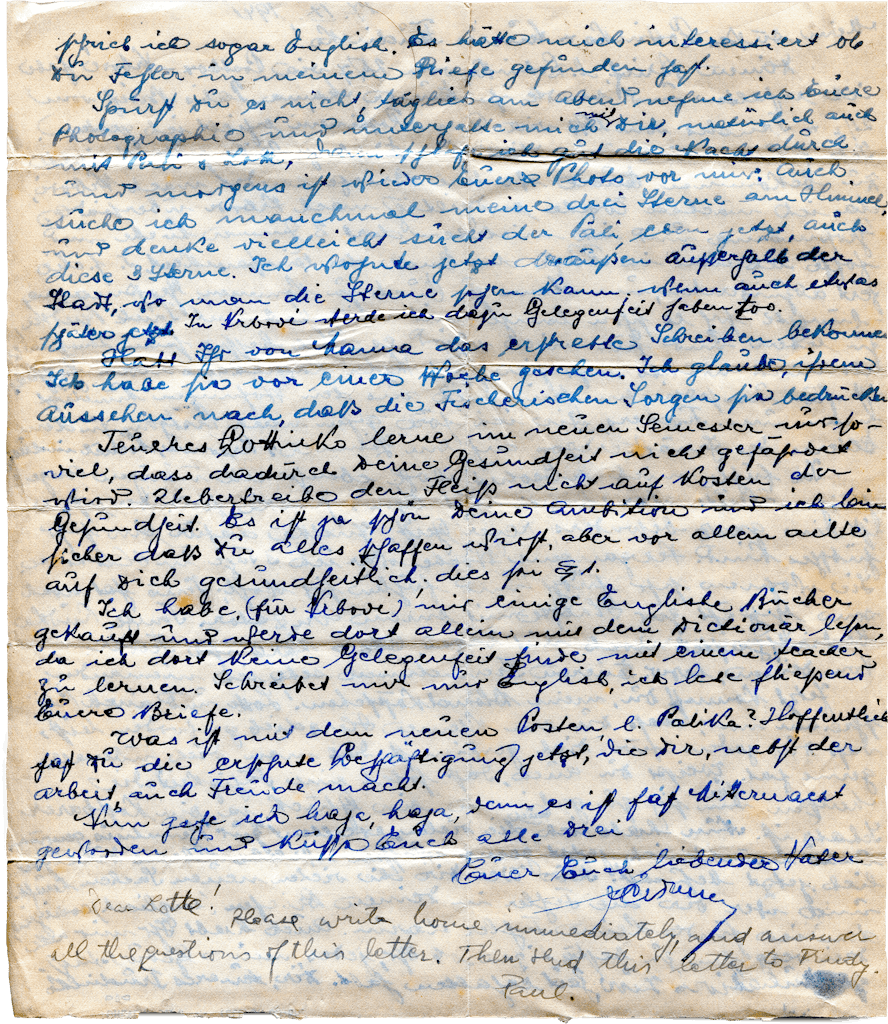 sprich ich sogar English. Es hätte mich interessiert ob
Du Fehler in meinem Briefe gefunden hast.
Spürst Du es nicht, täglich am Abend nehme ich Euere
Photographie und unterhalte mich mit Dir, natürlich auch
mit Pali & Lotti, dann schlafe ich gut die Nacht durch
und morgens ist wieder Euere Photo vor mir. Auch
suche ich manchmal meine drei Sterne am Himmel,
und denke vielleicht sucht der Pali, eben jetzt, auch
diese 3 Sterne. Ich wohnte jetzt draußen außerhalb der
Stadt, wo man die Sterne sehen kann. wenn auch etwas
später jetzt In Vrbové werde ich dazu Gelegenheit haben too.
Hatt Ihr von Hanna das ersehnte Schreiben bekommen
Ich habe sie vor einer Woche gesehen. Ich glaube, ihrem
Aussehen nach, daß die Fischerischen Sorgen sie bedrücken
Teueres Lottisko lerne im neuen Semester nur so-
viel, dass dadurch Deine Gesundheit nicht gefährdet
wird. Uebertreibe den Fleiß nicht auf Kosten der
Gesundheit. Es ist ja schön Deine Ambition und ich bin
sicher daß Du alles schaffen wirst, aber vor allem achte
auf Dich gesundheitlich, dies sei § 1.
Ich habe (für Vrbové) mir einige Englishe Bücher
gekauft und werde dort allein mit dem Dictionär lesen,
da ich dort keine Gelegenheit finde mit einem teacher
zu lernen. Schreibet mir nur English, ich lese fliessend
Euere Briefe.
Was ist mit dem neuen Posten, l. Palika? Hoffentlich
hast Du die ersehnte Beschäftigung jetzt, die Dir, nebst der
arbeit auch Freude macht.
Nun gehe ich haja, haja, denn es ist fast Mitternacht
geworden und küsse Euch alle drei
Euer Euch liebender Vater
Dear Lotte!
Please write home immediately, and answer
all the questions of this letter. Then send this letter to
Paul.